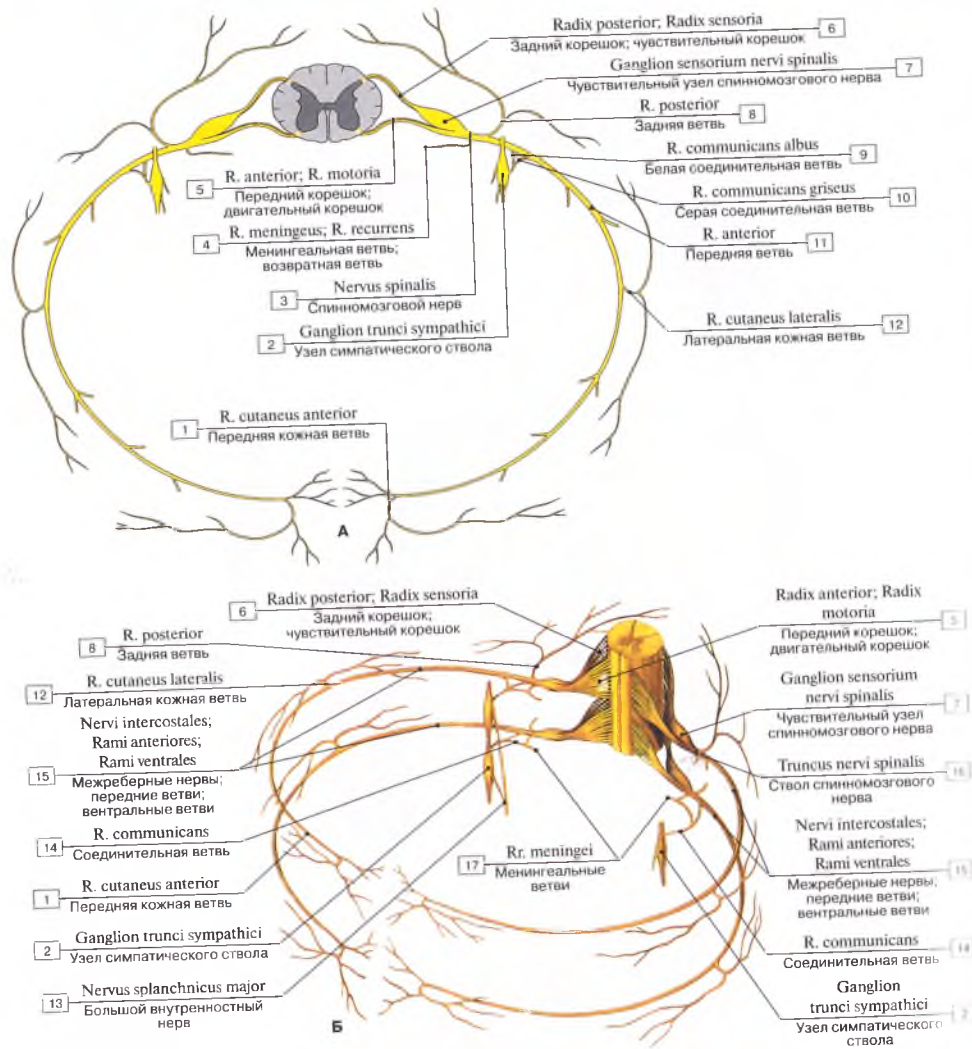 Radix posterior; Radix sensoria
6
Задний корешок; чувствительный корешок
Ganglion sensorium nervi spinalis
7
Чувствительный узел спинномозгового нерва
R. posterior
8
Задняя ветвь
R. communicans albus
9
Белая соединительная ветвь
R. communicans griseus
10
Серая соединительная ветвь
R. anterior
11
Передняя ветвь
R. cutaneus lateralis
12
Латеральная кожная ветвь
R. anterior; R. motoria
5
Передний корешок;
двигательный корешок
R. meningeus; R. recurrens
4
Менингеальная ветвь;
возвратная ветвь
Nervus spinalis
3
Спинномозговой нерв
Ganglion trunci sympathici
2
Узел симпатического ствола
R. cutaneus anterior
1
Передняя кожная ветвь
А
Radix posterior; Radix sensoria
6
Задний корешок;
чувствительный корешок
R. posterior
8
Задняя ветвь
R. cutaneus lateralis
12
Латеральная кожная ветвь
Nervi intercostales;
Rami anteriores;
Rami ventrales
15
Межреберные нервы;
передние ветви;
вентральные ветви
R. communicans
14
Соединительная ветвь
R. cutaneus anterior
1
Передняя кожная ветвь
Ganglion trunci sympathici
2
Узел симпатического ствола
Nervus splanchnicus major
13
Большой внутренностный
нерв
Б
Rr. meningei
17
Менингеальные
ветви
Radix anterior; Radix
motoria
5
Передний корешок;
двигательный корешок
Ganglion sensorium
nervi spinalis
7
Чувствительный узел
спинномозгового нерва
Truncus nervi spinalis
16
Ствол спинномозгового
нерва
Nervi intercostales;
Rami anteriores;
Rami ventrales
15
Межреберные нервы;
передние ветви;
вентральные ветви
R. communicans
14
Соединительная ветвь
Ganglion
trunci sympathici
2
Узел симпатического
ствола